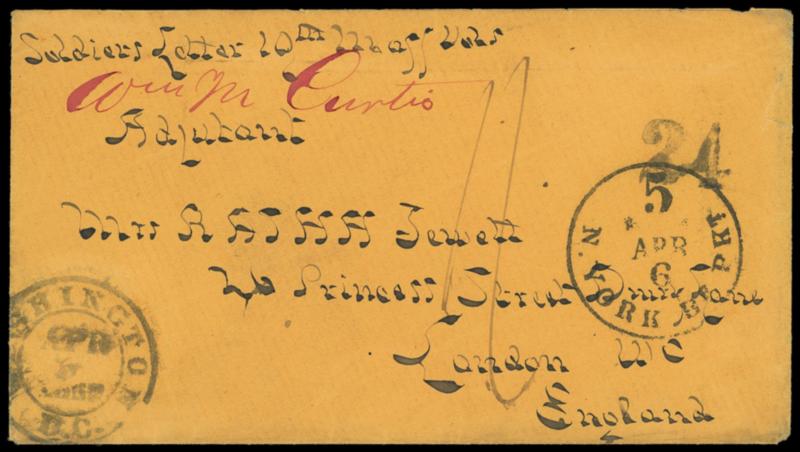 Soldiers Letter 10th Mass Vols
Wm M Curtis
Adjutant
24
5
APR
6
N. YORK BR PKT
Mrs R Jewett
Princess Street Drury Lane
London WC
England
11
WASHINGTON
APR
5
D.C.